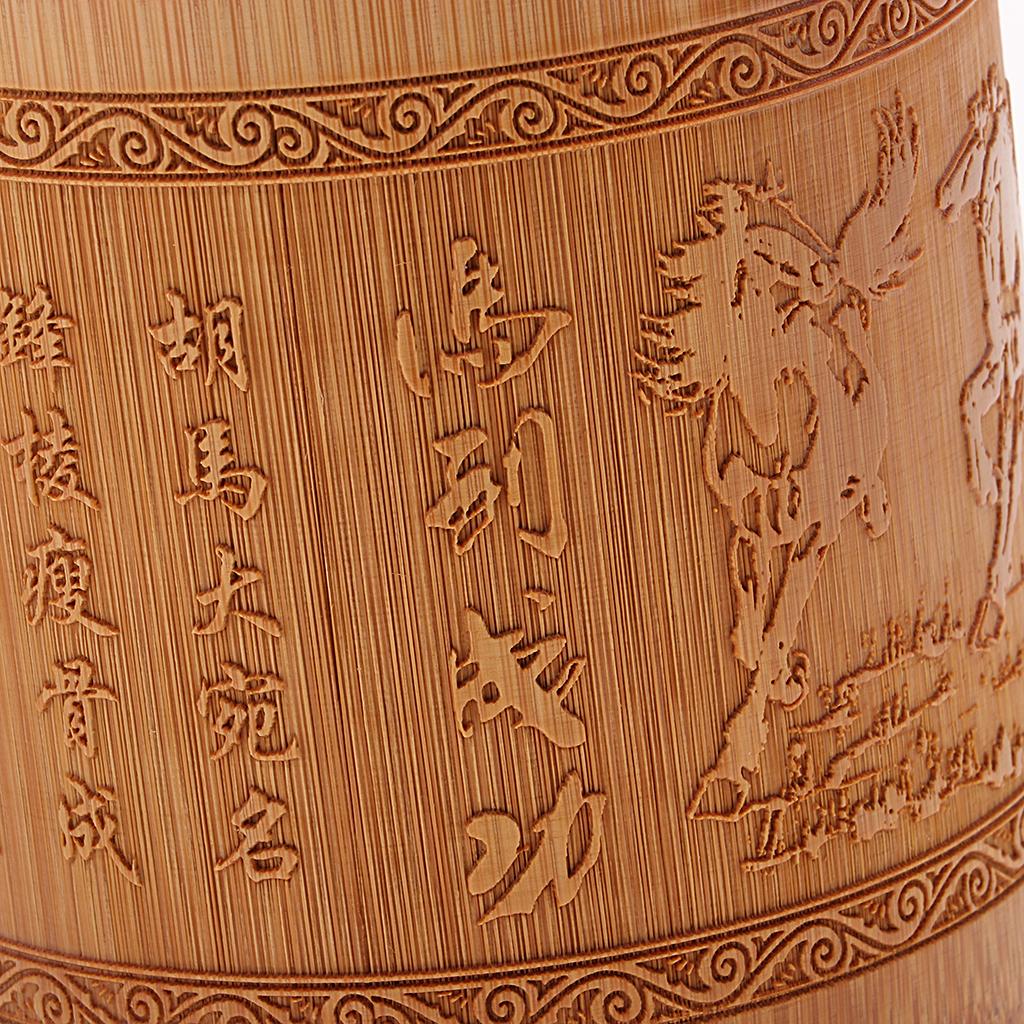 馬到成功
胡馬大宛名
鋒稜瘦骨成